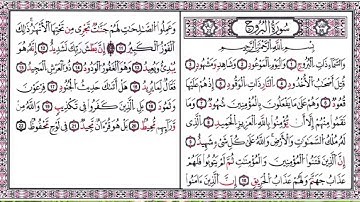 سُورَةُ الْبُرُوجِ
بِسْمِ اللَّهِ الرَّحْمَٰنِ الرَّحِيمِ
وَالسَّمَاءِ ذَاتِ الْبُرُوجِ ١ وَالْيَوْمِ الْمَوْعُودِ ٢ وَشَاهِدٍ وَمَشْهُودٍ ٣
قُتِلَ أَصْحَٰبُ الْأُخْدُودِ ٤ النَّارِ ذَاتِ الْوَقُودِ ٥ إِذْ هُمْ عَلَيْهَا
قُعُودٌ ٦ وَهُمْ عَلَىٰ مَا يَفْعَلُونَ بِالْمُؤْمِنِينَ شُهُودٌ ٧ وَمَا
نَقَمُوا مِنْهُمْ إِلَّا أَن يُؤْمِنُوا بِاللَّهِ الْعَزِيزِ الْحَمِيدِ ٨ الَّذِي
لَهُ مُلْكُ السَّمَٰوَٰتِ وَالْأَرْضِ وَاللَّهُ عَلَىٰ كُلِّ شَيْءٍ شَهِيدٌ ٩
إِنَّ الَّذِينَ فَتَنُوا الْمُؤْمِنِينَ وَالْمُؤْمِنَٰتِ ثُمَّ لَمْ يَتُوبُوا فَلَهُمْ
عَذَابُ جَهَنَّمَ وَلَهُمْ عَذَابُ الْحَرِيقِ ١٠ إِنَّ الَّذِينَ ءَامَنُوا
وَعَمِلُوا الصَّٰلِحَٰتِ لَهُمْ جَنَّٰتٌ تَجْرِي مِن تَحْتِهَا الْأَنْهَٰرُ ذَٰلِكَ
الْفَوْزُ الْكَبِيرُ ١١ إِنَّ بَطْشَ رَبِّكَ لَشَدِيدٌ ١٢ إِنَّهُ هُوَ
يُبْدِئُ وَيُعِيدُ ١٣ وَهُوَ الْغَفُورُ الْوَدُودُ ١٤ ذُو الْعَرْشِ الْمَجِيدُ ١٥
فَعَّالٌ لِّمَا يُرِيدُ ١٦ هَلْ أَتَىٰكَ حَدِيثُ الْجُنُودِ ١٧ فِرْعَوْنَ
وَثَمُودَ ١٨ بَلِ الَّذِينَ كَفَرُوا فِي تَكْذِيبٍ ١٩ وَاللَّهُ مِن
وَرَائِهِم مُّحِيطٌ ٢٠ بَلْ هُوَ قُرْءَانٌ مَّجِيدٌ ٢١ فِي لَوْحٍ مَّحْفُوظٍ ٢٢